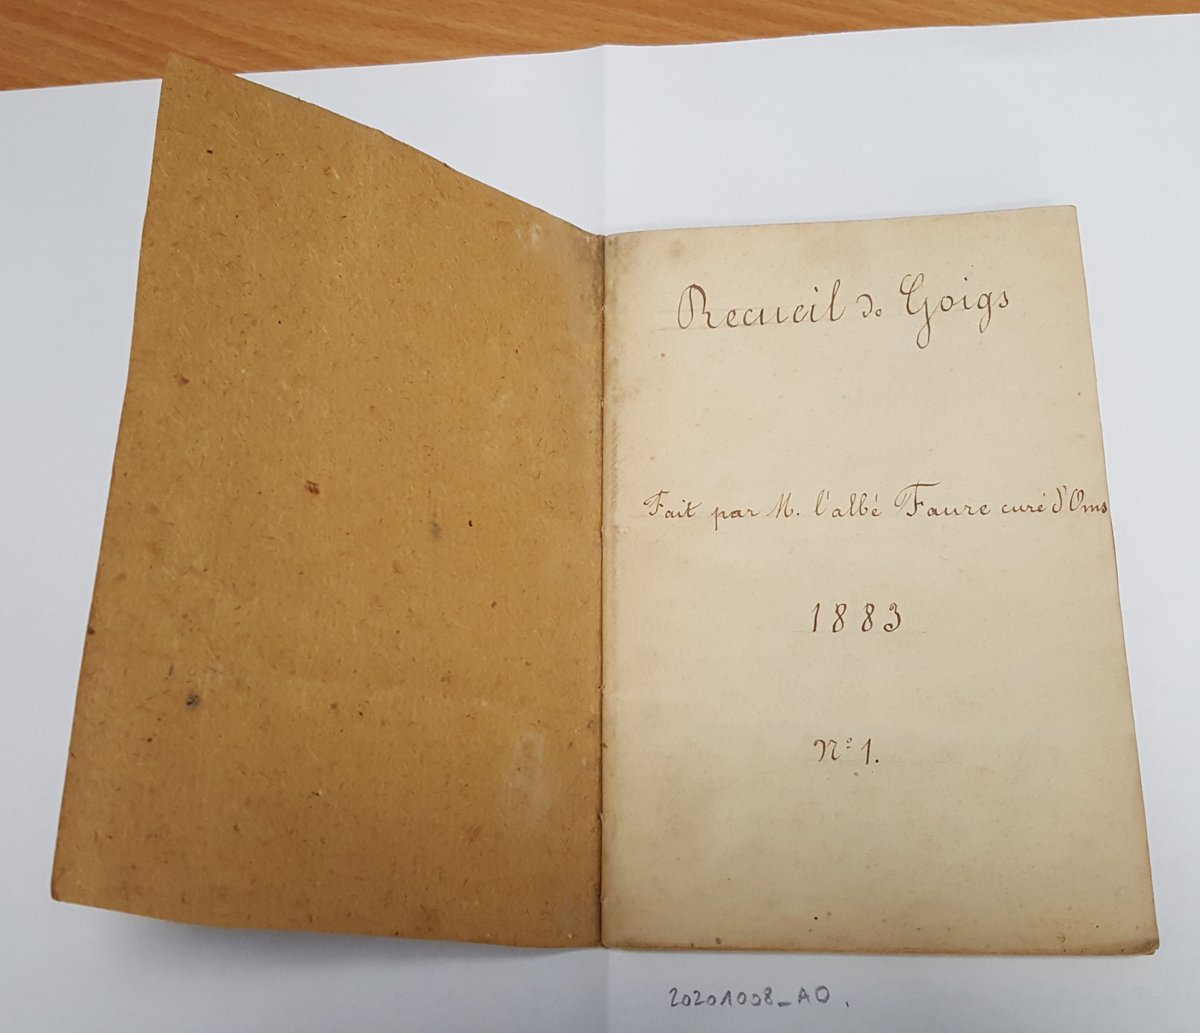 Recueil de Goigs
Fait par M. l'abbé Faure curé d'Oms
1883
Nº 1.
20201008_AO.